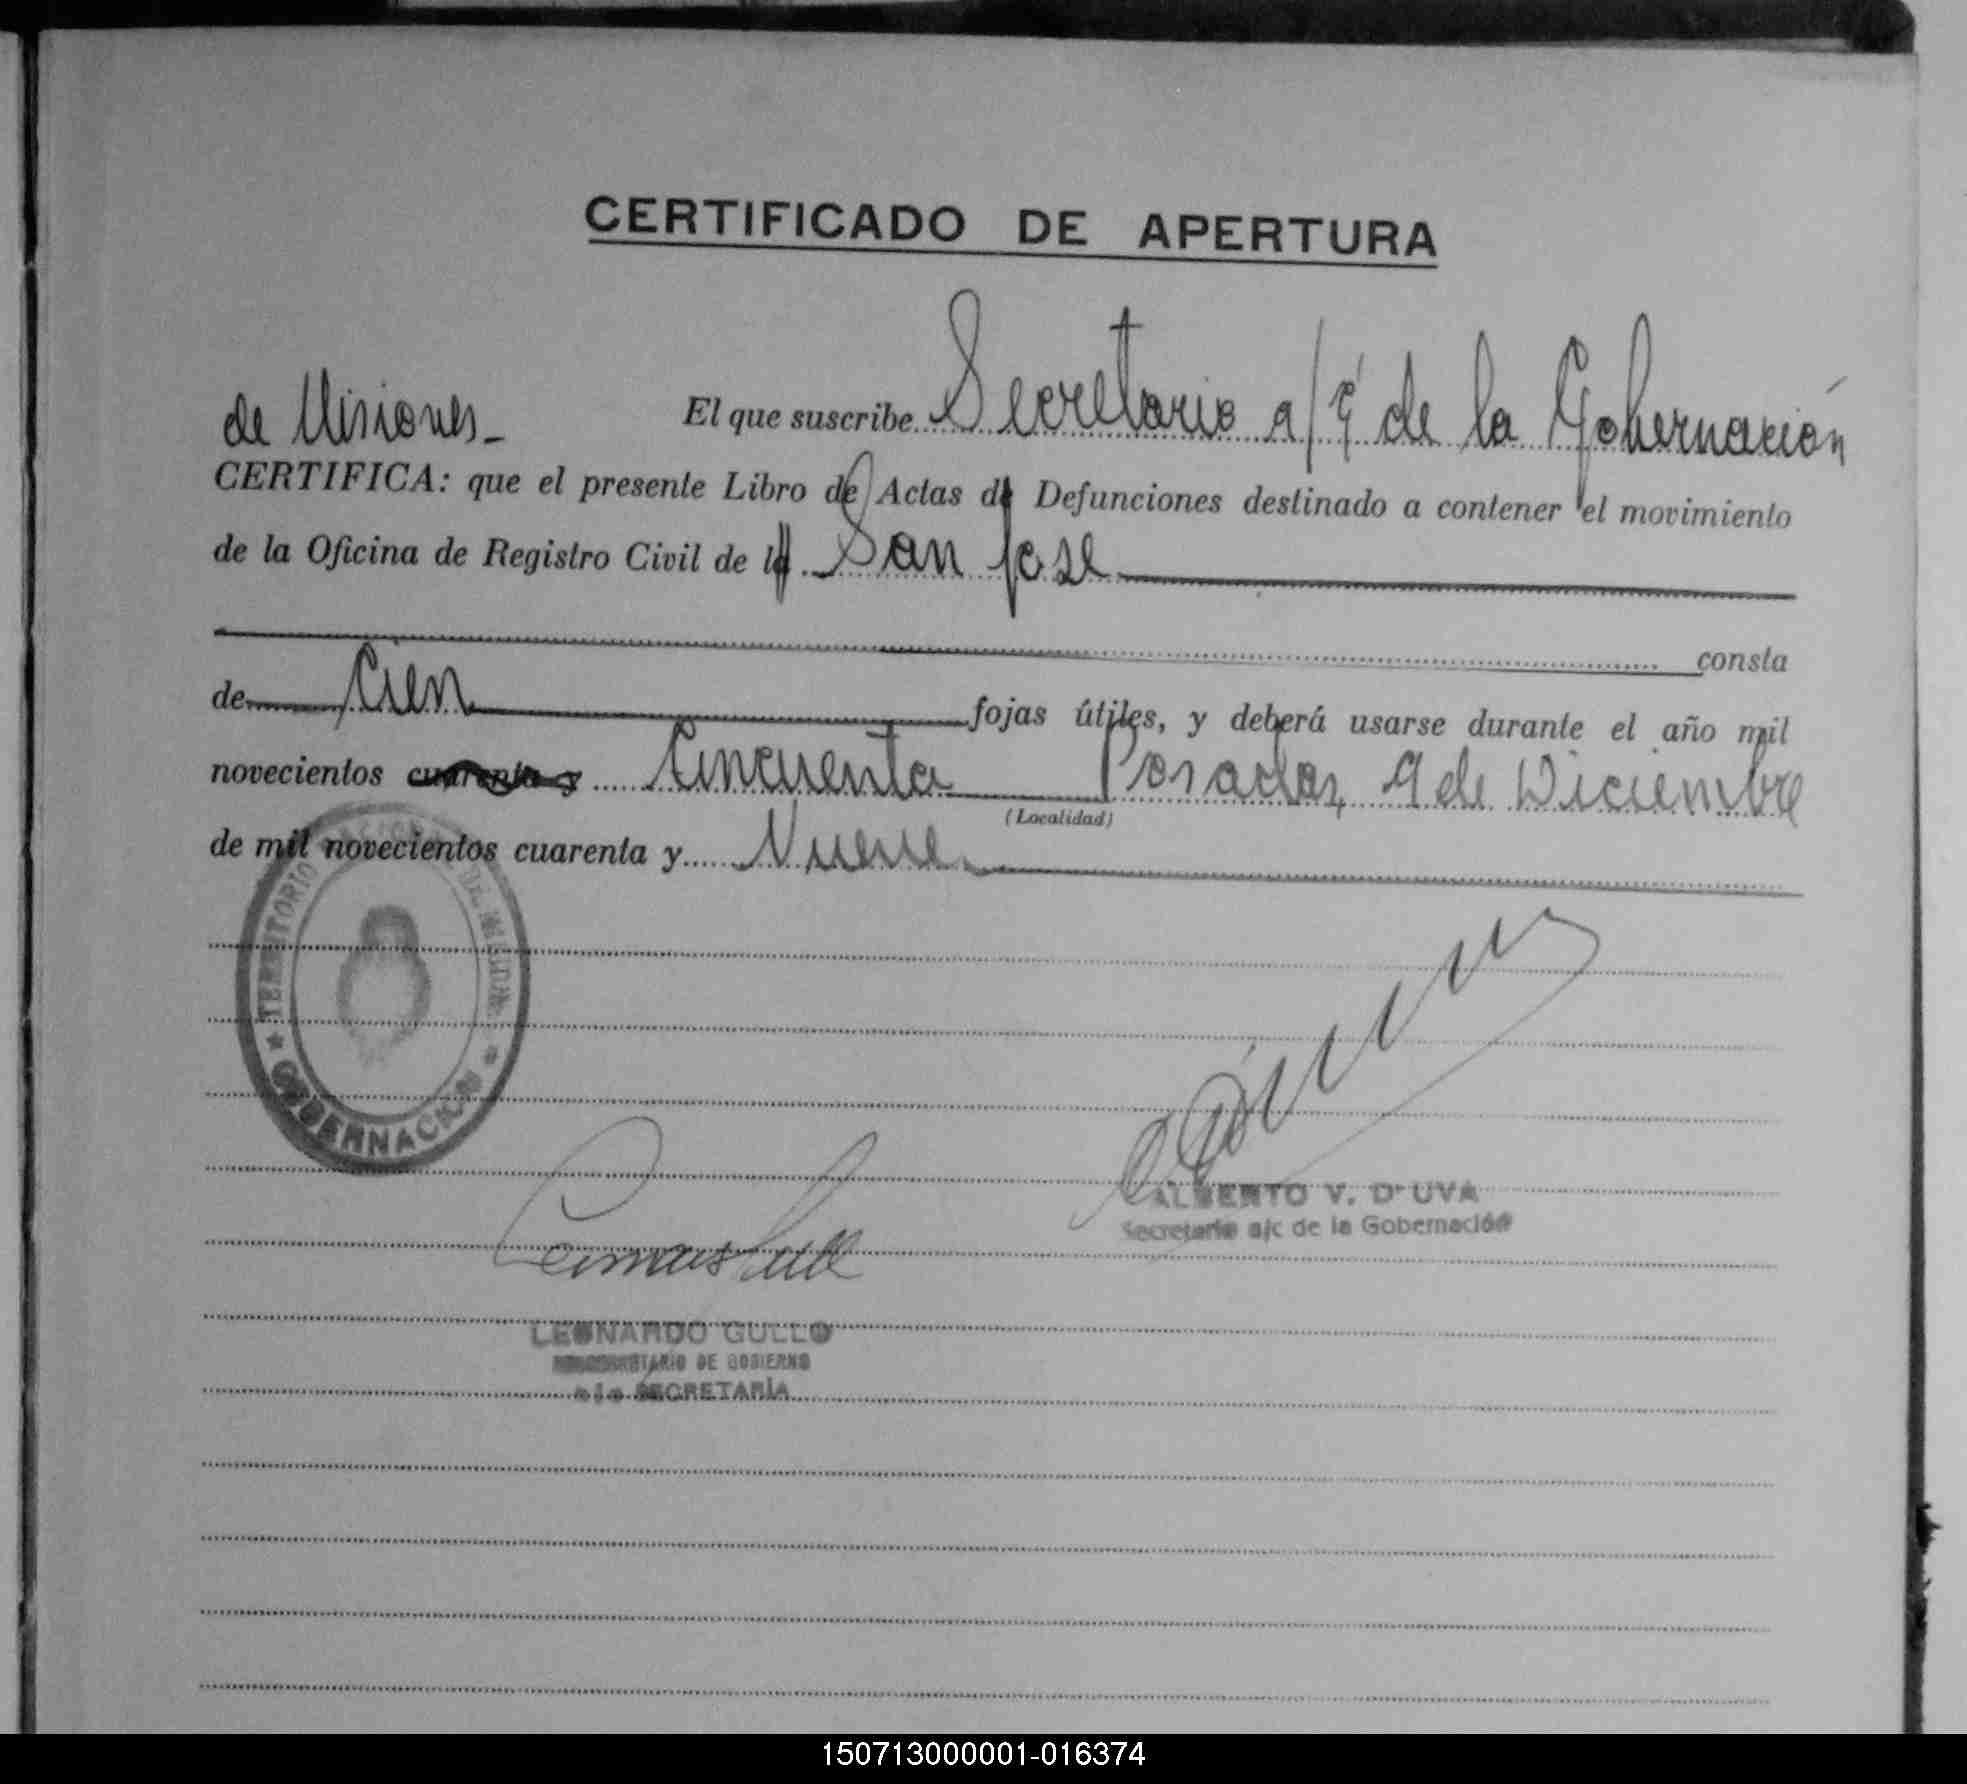 CERTIFICADO DE APERTURA
El que suscribe Secretario a/c de la Gobernación
de Misiones_
CERTIFICA: que el presente Libro de Actas de Defunciones destinado a contener el movimiento
de la Oficina de Registro Civil de San José
consta
de Cien fojas útiles, y deberá usarse durante el año mil
novecientos cuarenta y Cincuenta Posadas, 9 de Diciembre
(Localidad)
de mil novecientos cuarenta y Nueve
TERRITORIO NACIONAL DE MISIONES
★ GOBERNACION ★
ALBERTO V. D'UVA
Secretario a/c de la Gobernación
LEONARDO GULLO
DE GOBIERNO
a/c SECRETARÍA
150713000001-016374